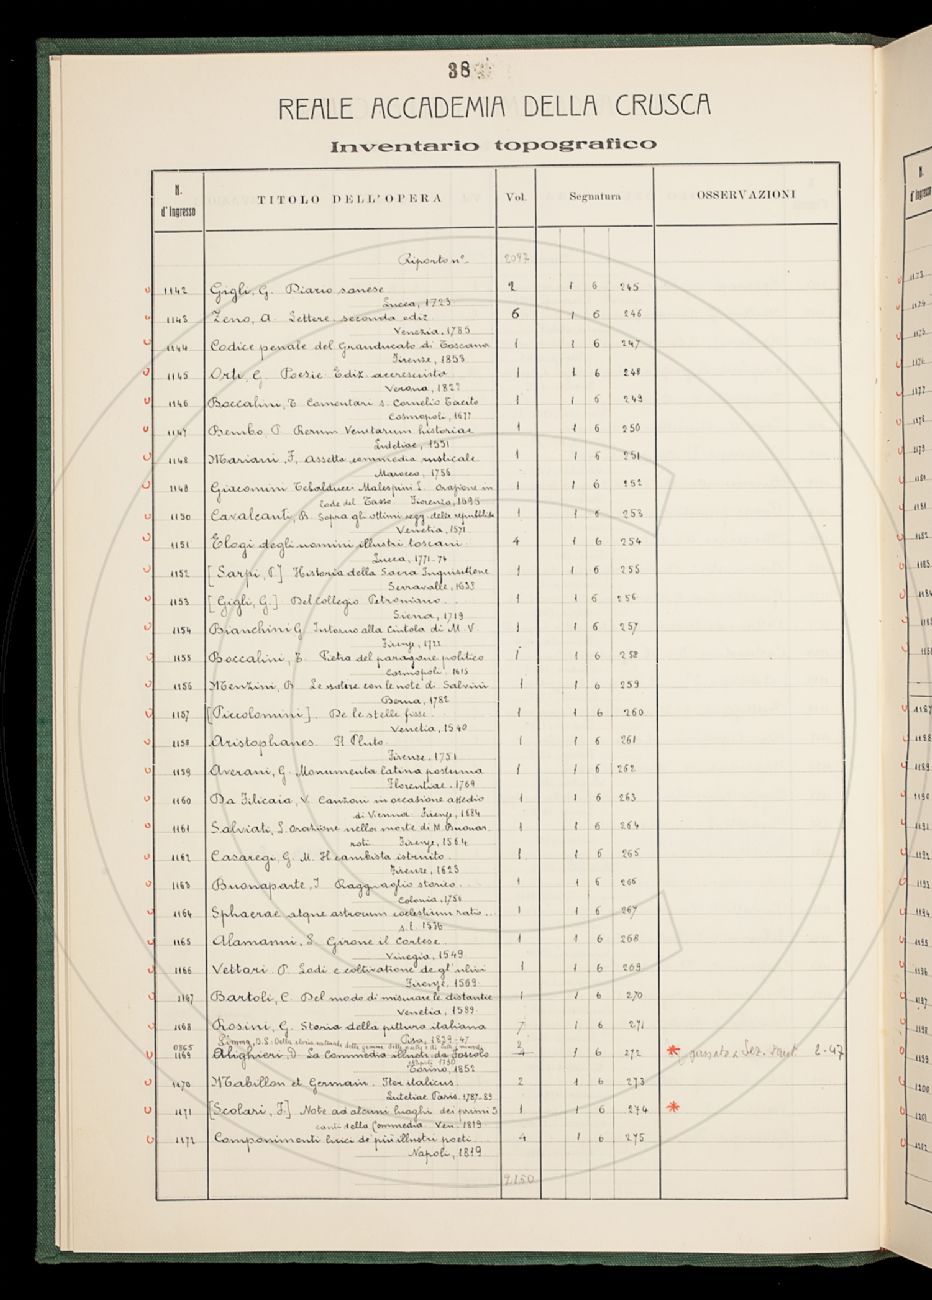 38
REALE ACCADEMIA DELLA CRUSCA
Inventario topografico
N. d'Ingresso TITOLO DELL'OPERA Vol. Segnatura OSSERVAZIONI
Riporto nº 2097
1142 Gigli, G. Diario sanese 2 1 6 245
Lucca, 1723
1143 Zeno, A. Lettere. seconda ediz. 6 1 6 246
Venezia, 1785
1144 Codice penale del Granducato di Toscana 1 1 6 247
Firenze, 1853
1145 Orti, G. Poesie. Ediz. accresciuta 1 1 6 248
Verona, 1822
1146 Boccalini, T. Comentari s. Cornelio Tacito 1 1 6 249
Cosmopoli, 1677
1147 Bembo, P. Rerum Venetarum historiae 1 1 6 250
Lutetiae, 1551
1148 Mariani, F. Assetta commedia rusticale 1 1 6 251
Marocco, 1756
1149 Giacomini Tebalducci Malespini L. Orazione in 1 1 6 252
lode del Tasso. Fiorenza, 1595
1150 Cavalcanti, B. Sopra gli ottimi regg. delle repubbliche 1 1 6 253
Venetia, 1571
1151 Elogi degli uomini illustri toscani 4 1 6 254
Lucca, 1771-74
1152 [Sarpi, P.] Historia della Sacra Inquisitione 1 1 6 255
Serravalle, 1638
1153 [Gigli, G.] Del Collegio Petroniano 1 1 6 256
Siena, 1719
1154 Bianchini G. Intorno alla Cintola di M. V. 1 1 6 257
Firenze, 1722
1155 Boccalini, T. Pietra del paragone politico 1 1 6 258
Cosmopoli, 1615
1156 Menzini, B. Le satire con le note di Salvini 1 1 6 259
Berna, 1782
1157 [Piccolomini]. De le stelle fisse. 1 1 6 260
Venetia, 1540
1158 Aristophanes. Il Pluto. 1 1 6 261
Firenze, 1751
1159 Averani, G. Monumenta latina postuma 1 1 6 262
Florentiae, 1769
1160 Da Filicaia, V. Canzoni in occasione assedio 1 1 6 263
di Vienna. Firenze, 1684
1161 Salviati, L. Orazione nella morte di M. Buonar- 1 1 6 264
roti. Firenze, 1564
1162 Casaregi, G. M. Il cambista istruito. 1 1 6 265
Firenze, 1623
1163 Buonaparte, J. Ragguaglio storico. 1 1 6 266
Colonia, 1756
1164 Sphaerae atque astrorum coelestium ratio.. 1 1 6 267
s. l. 1536
1165 Alamanni, L. Girone il Cortese. 1 1 6 268
Vinegia, 1549
1166 Vettori P. Lodi e coltivatione de gl' ulivi 1 1 6 269
Firenze, 1569
1167 Bartoli, C. Del modo di misurare le distantie 1 1 6 270
Venetia, 1589
1168 Rosini, G. Storia della pittura italiana 7 1 6 271
Pisa, 1839-47
0865 2
1169 Alighieri, D. La Commedia illustr. da Foscolo 4 1 6 272 * passato a Sez. 2-47
Torino, 1852
1170 Mabillon et Germain. Iter italicus. 2 1 6 273
Lutetiae Paris. 1787-89
1171 [Scolari, F.] Note ad alcuni luoghi dei primi 5 1 1 6 274 *
canti della Commedia. Ven. 1819
1172 Componimenti lirici de' più illustri poeti 4 1 6 275
Napoli, 1819
2150